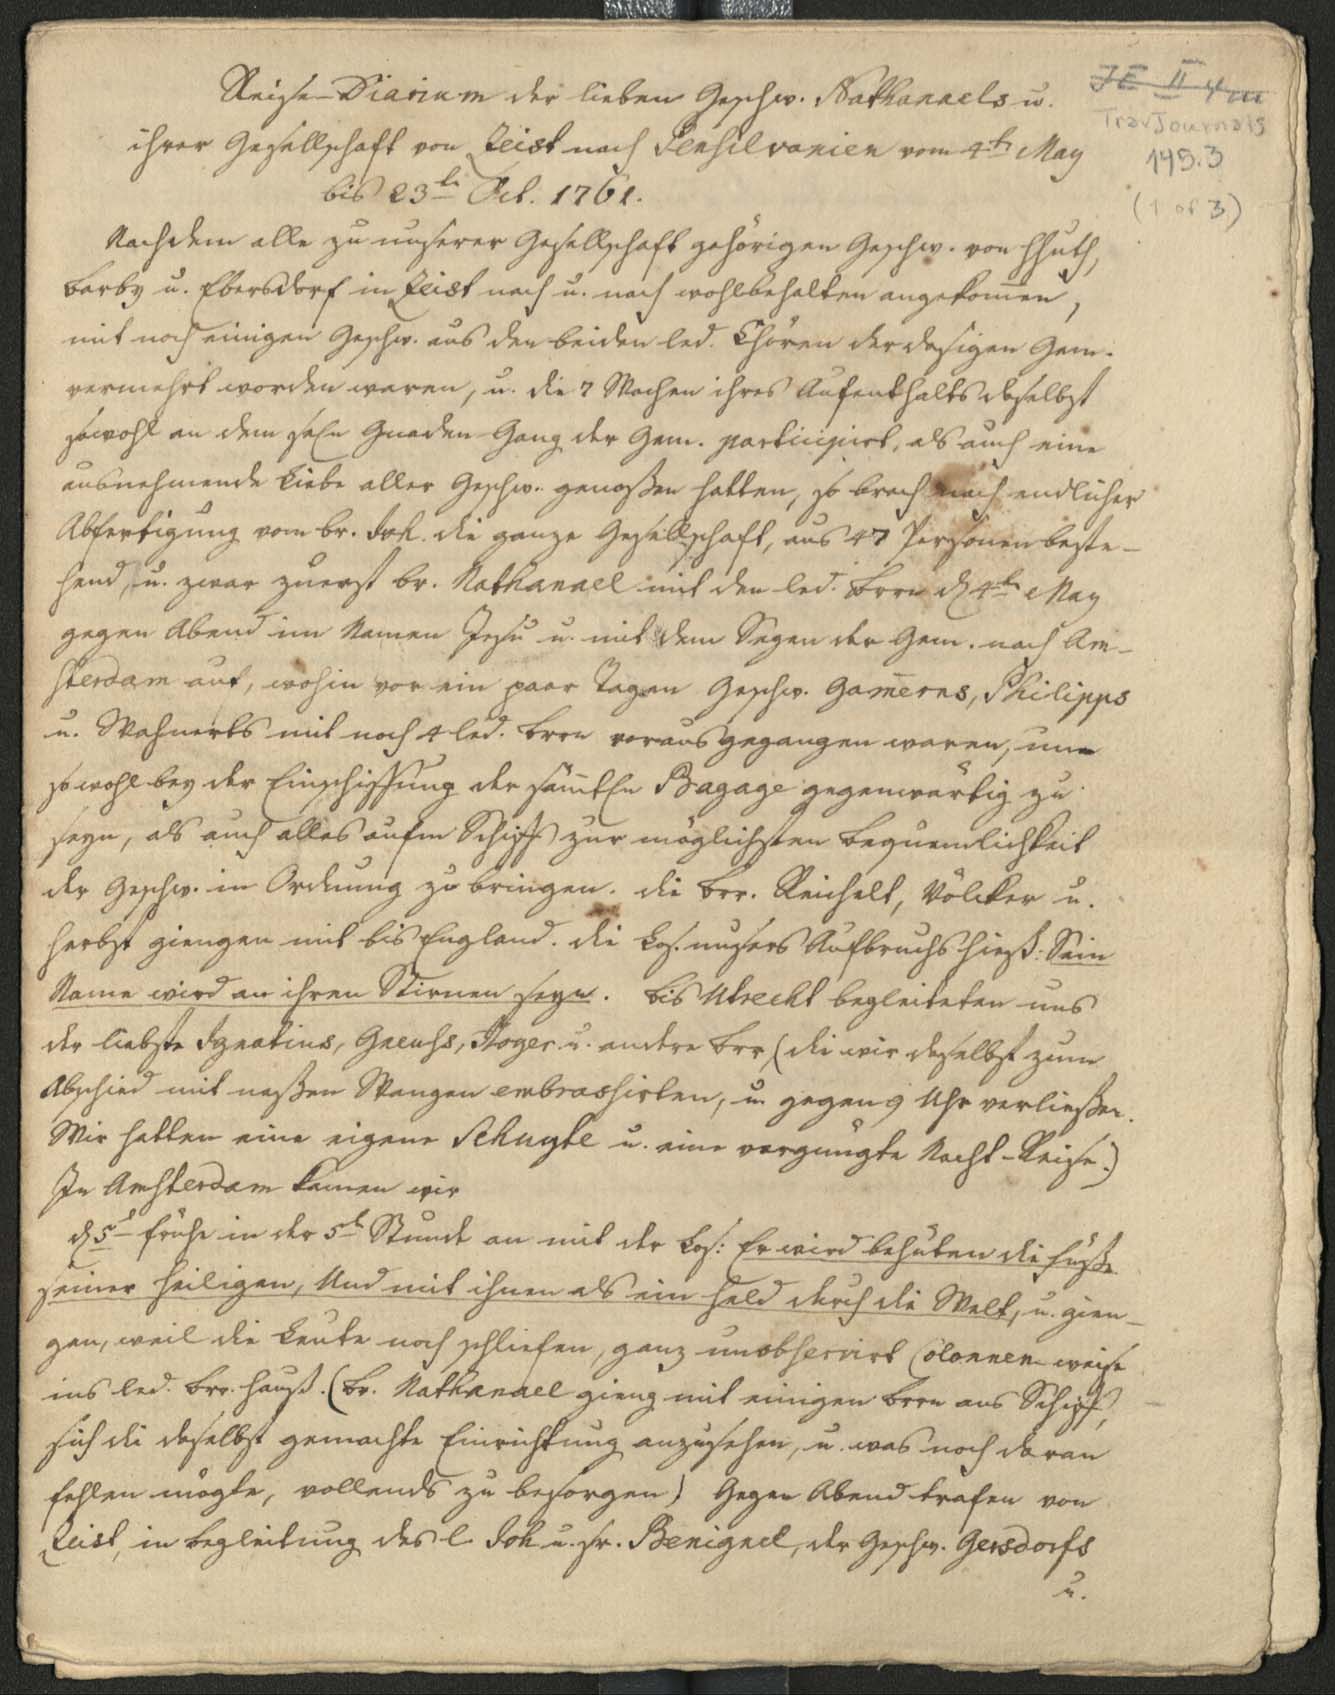 Reise-Diarium der lieben Geschw. Nathanaels u.
ihrer Gesellschaft von Zeist nach Pensilvanien vom 4t. May
bis 23t. Oct. 1761.
JE II 4 m
TravJournals
145.3
(1 of 3)
Nachdem alle zu unserer Gesellschaft gehörigen Geschw. von Hhuth,
Barby u. Ebersdorf in Zeist nach u. nach wohlbehalten angekom̄en,
mit noch einigen Geschw. aus den beiden led. Chören der dasigen Gem.
vermehrt worden waren, u. die 7 Wochen ihres Aufenthalts daselbst
sowohl an dem seln Gnaden-Gang der Gem. participirt, als auch eine
ausnehmende Liebe aller Geschw. genoßen hatten, so brach nach endlicher
Abfertigung vom br. Joh. die ganze Gesellschaft, aus 47 Personen beste-
hend, u. zwar zuerst br. Nathanael mit den led. Brrn d. 4t. May
gegen Abend im Namen Jesu u. mit dem Segen der Gem. nach Am-
sterdam auf, wohin vor ein paar Tagen Geschw. Gam̄erns, Philipps
u. Wahnerts mit noch 4 led. Brrn voraus gegangen waren, um
sowohl bey der Einschiffung der säm̄tln Bagage gegenwärtig zu
seyn, als auch alles aufm Schiff zur möglichsten Bequemlichkeit
der Geschw. in Ordnung zu bringen. Die Brr. Reichelt, Völcker u.
Herbst giengen mit bis England. Die Los. unsers Aufbruchs hieß: Sein
Name wird an ihren Stirnen seyn. Bis Utrecht begleiteten uns
der liebste Ignatius, Gneuhs, Roger u. andre Brr, (die wir daselbst zum
Abschied mit naßen Wangen embrassirten, u. gegen 9 Uhr verließen.
Wir hatten eine eigene Schuyte u. eine vergnügte Nacht-Reise.)
In Amsterdam kamen wir
d. 5t. frühe in der 5t. Stunde an mit der Los: Er wird behüten die Füße
seiner Heiligen, Und mit ihnen als ein Held durch die Welt, u. gien-
gen, weil die Leute noch schliefen, ganz unobservirt Colonnen-weise
ins led. Brr. Hauß. (Br. Nathanael gieng mit einigen Brrn ans Schiff,
sich die daselbst gemachte Einrichtung anzusehen, u. was noch daran
fehlen mögte, vollends zu besorgen) Gegen Abend trafen von
Zeist, in Begleitung des l. Joh. u. sr. Benignel, der Geschw. Gersdorfs
u.